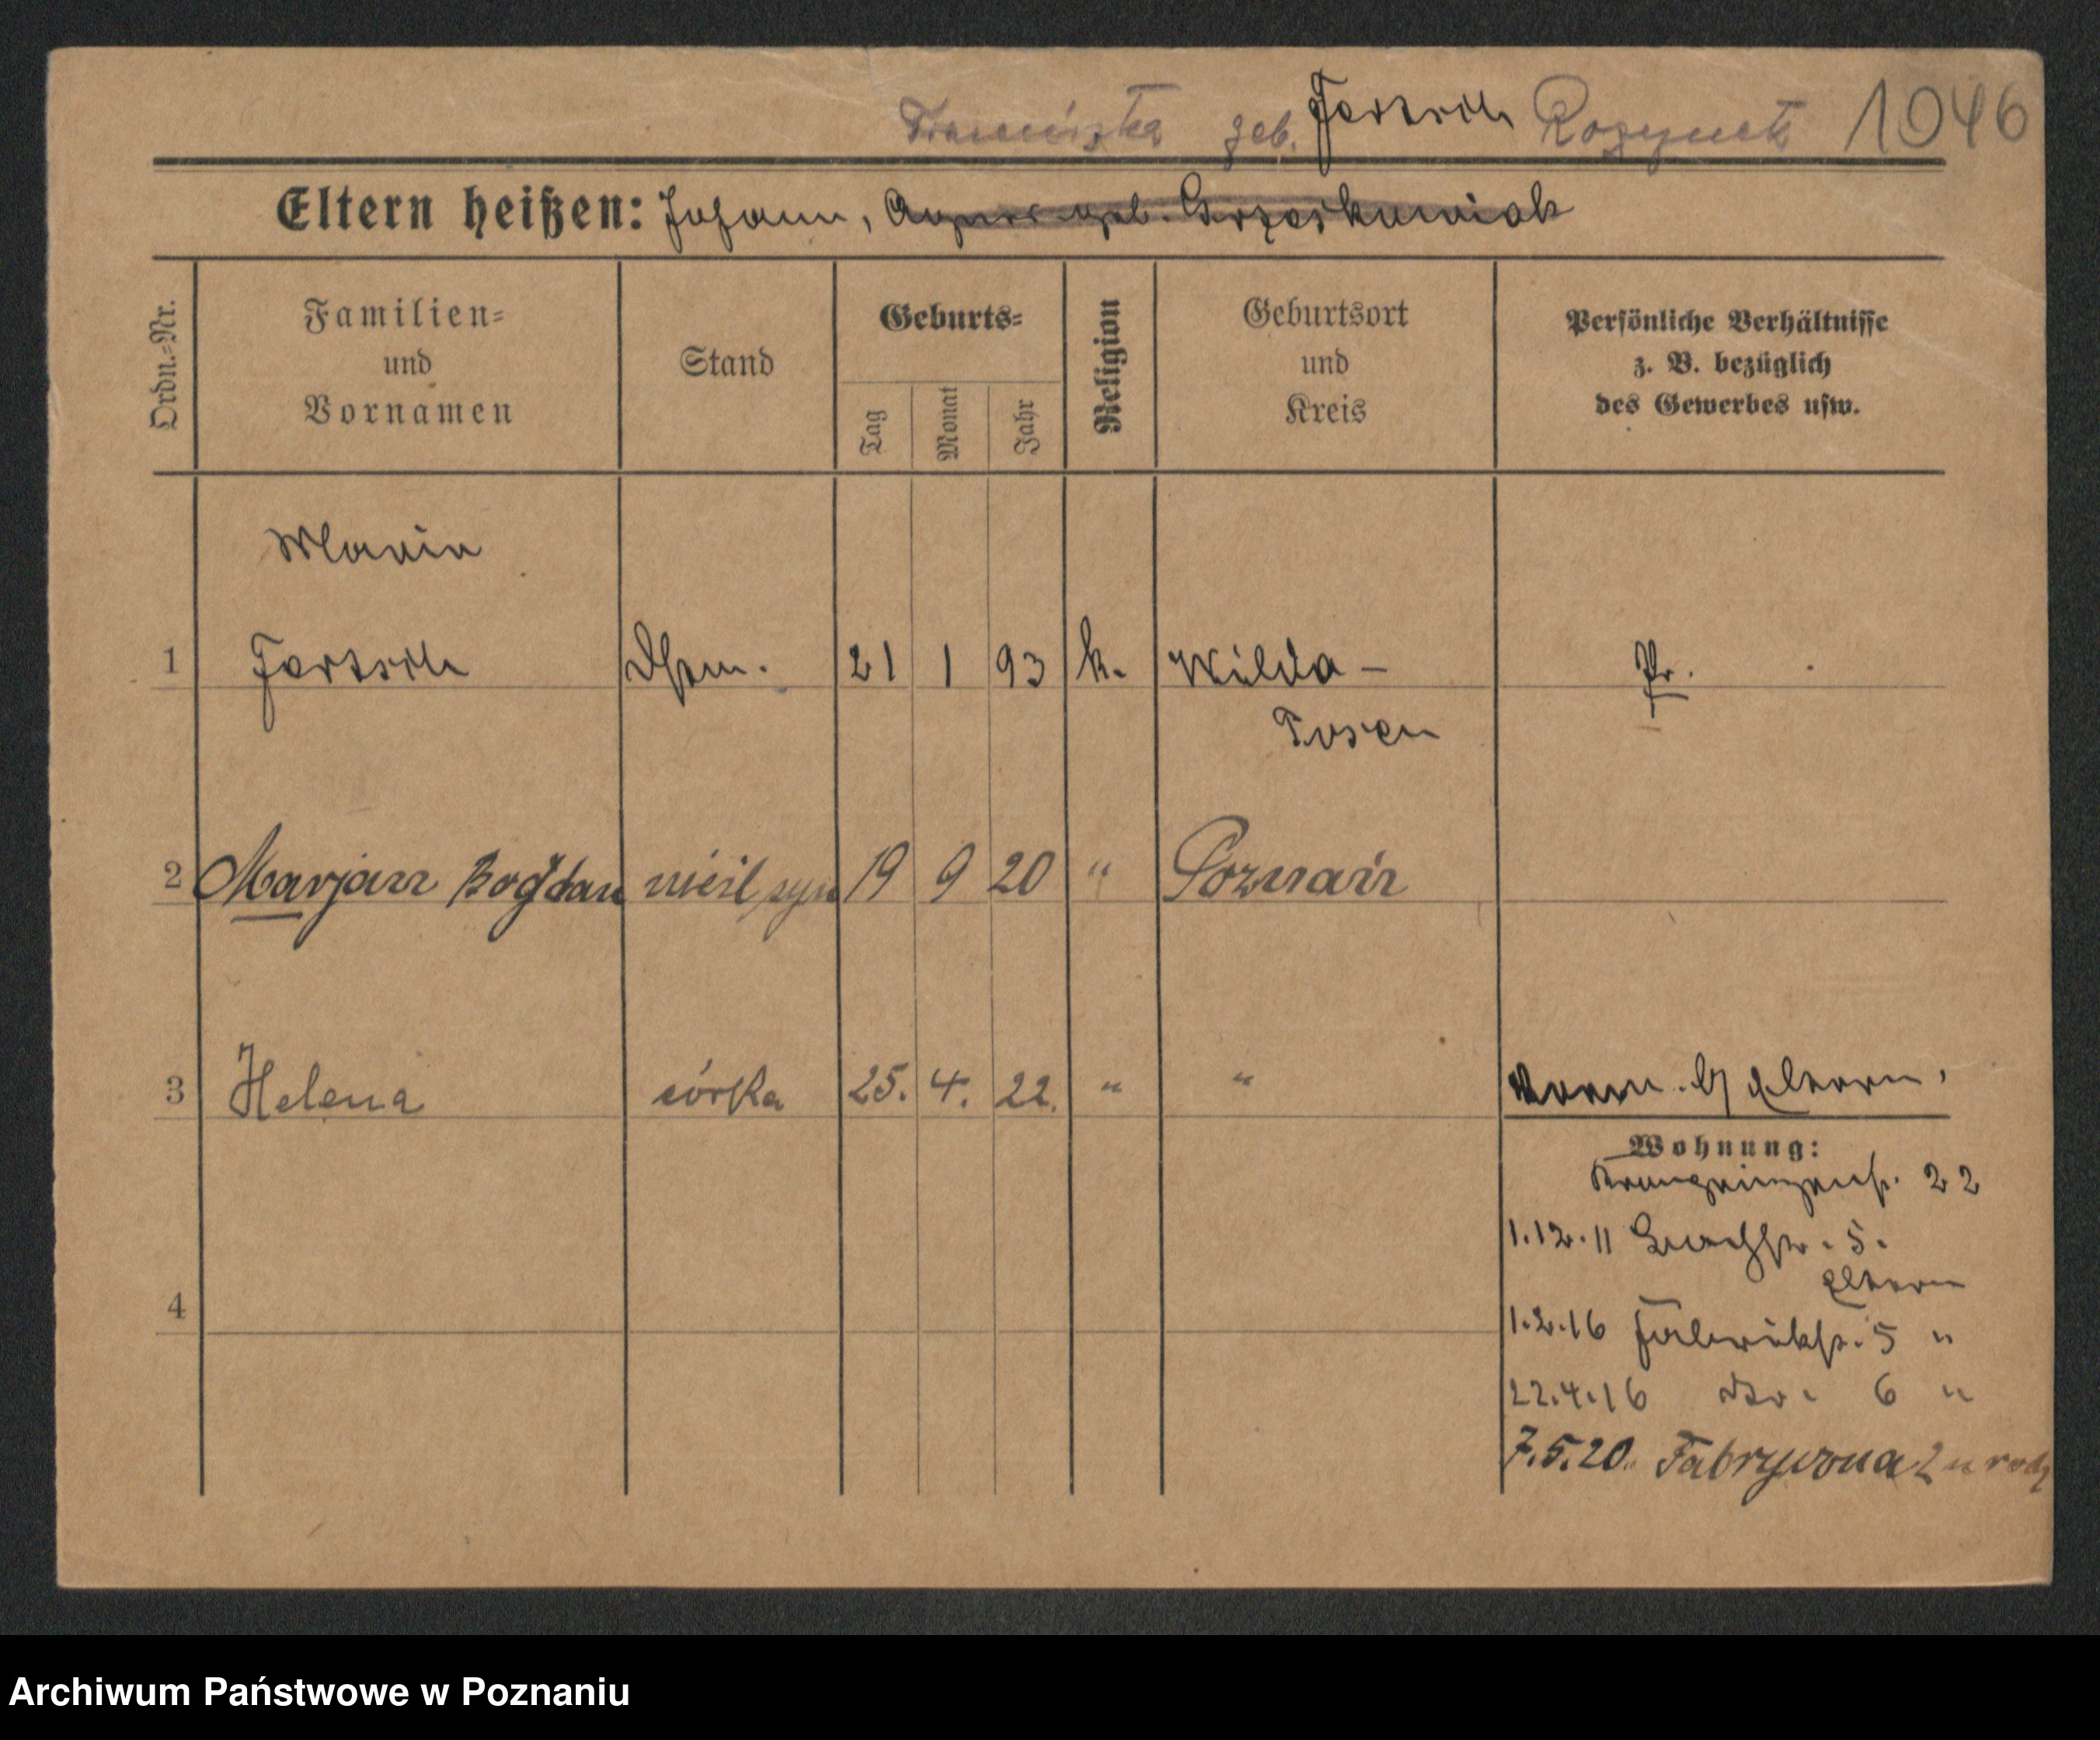 Franciszka geb. Fertsch 1046
Eltern heißen: Johann, Agnes geb. Grzeskowiak
Ordn.=Nr.
Familien=
und
Vornamen
Stand
Geburts=
Tag
Monat
Jahr
Religion
Geburtsort
und
Kreis
Persönliche Verhältnisse
z. B. bezüglich
des Gewerbes usw.
Maria
1 Fertsch 21 1 93 k. Wilda – Pr.
Posen
2 Marjan Bogdan nieśl syn 19 9 20 " Poznań
3 Helena córka 25. 4. 22. " " Eltern.
Wohnung:
Kronprinzenstr. 22
1.12.11 5.
Eltern
1.2.16 Fabrikstr. 5 "
4
22.4.16 6 "
7.5.20. 2 u rodz
Archiwum Państwowe w Poznaniu